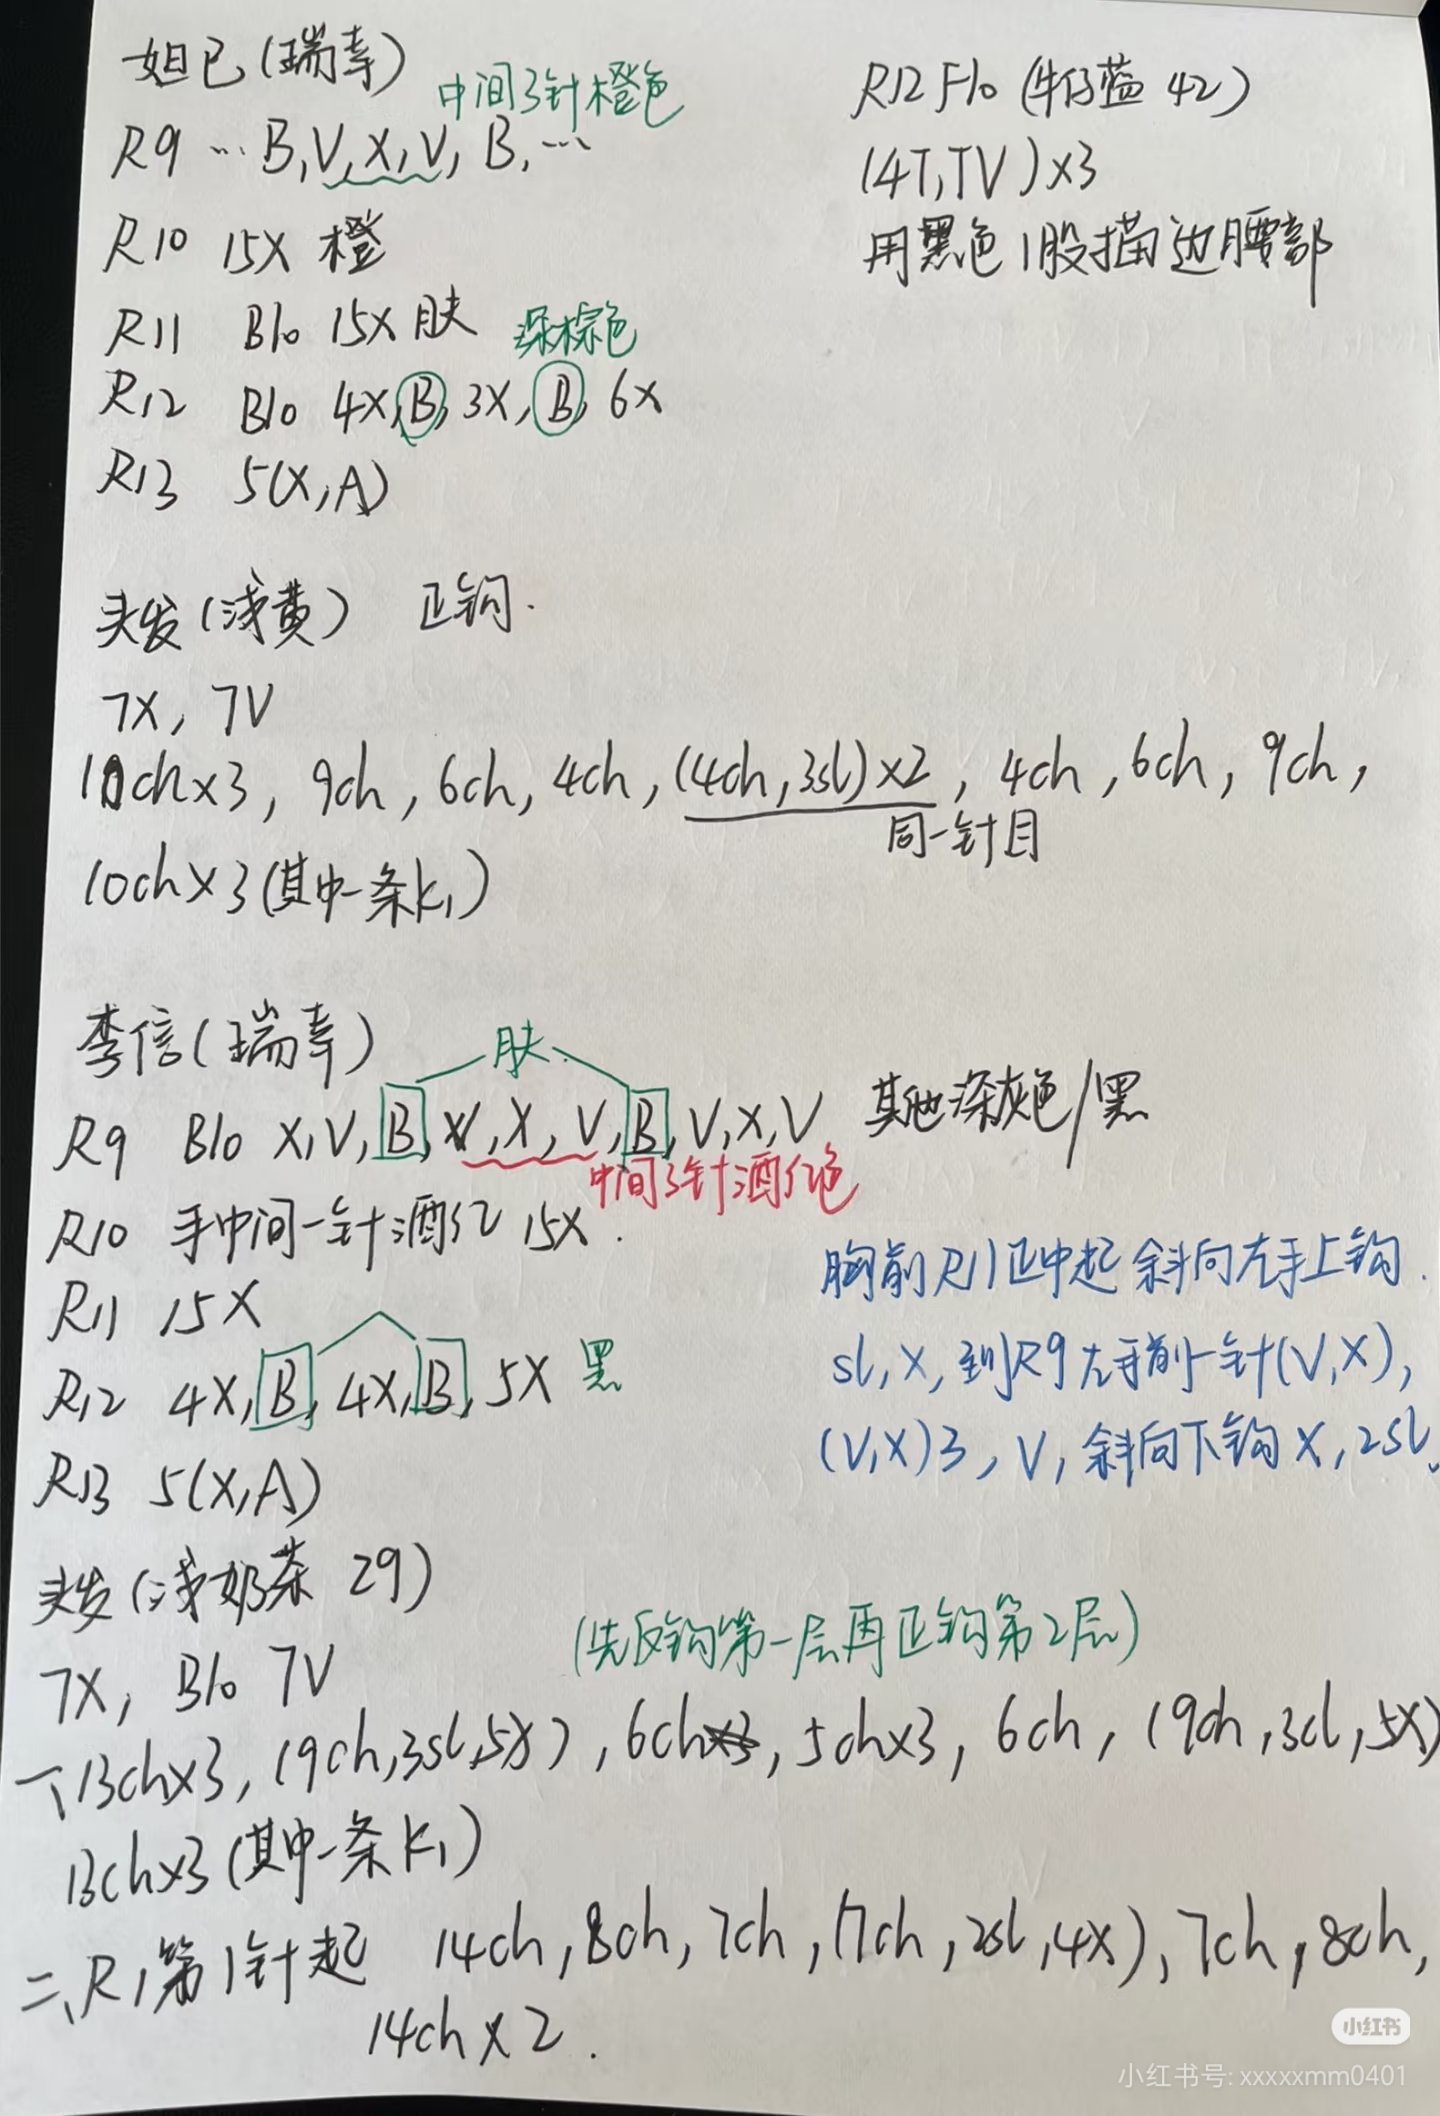 妲己(瑞幸)
中间3针橙色
R9 … B,V,X,V,B,…
R10 15X 橙
R11 Blo 15X 肤
深棕色
R12 Blo 4X,B,3X,B,6X
R13 5(X,A)
R12 Flo (牛仔蓝 42)
(4T,TV)x3
用黑色1股描边腰部
头发(浅黄) 正钩.
7X, 7V
10chx3, 9ch, 6ch, 4ch, (4ch,3sl)x2, 4ch, 6ch, 9ch,
同一针目
10chx3(其中一条k1)
李信(瑞幸)
肤
R9 Blo X,V,B,V,X,V,B,V,X,V 其他深灰色/黑
中间3针酒红色
R10 手中间一针酒红 15X.
R11 15X
R12 4X,B,4X,B,5X 黑
R13 5(X,A)
胸前R11正中起斜向左手上钩.
sl,X,到R9左手前一针(V,X),
(V,X)3,V,斜向下钩X,2sl.
头发(浅奶茶 29)
(先反钩第一层再正钩第2层)
7X, Blo 7V
一、13chx3, (9ch,3sl,5X), 6ch, 5chx3, 6ch, (9ch,3cl,5X)
13chx3(其中一条k1)
二、R1第1针起 14ch, 8ch, 7ch, (7ch,2sl,4X), 7ch, 8ch,
14chx2.
小红书
小红书号: xxxxxmm0401